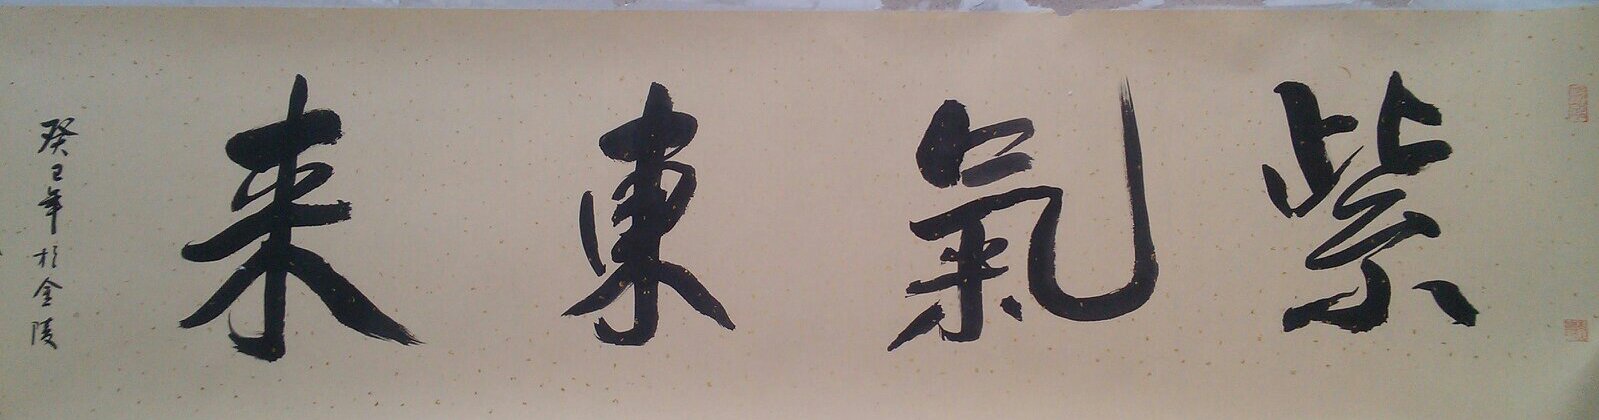 紫氣東来
癸巳年於金陵